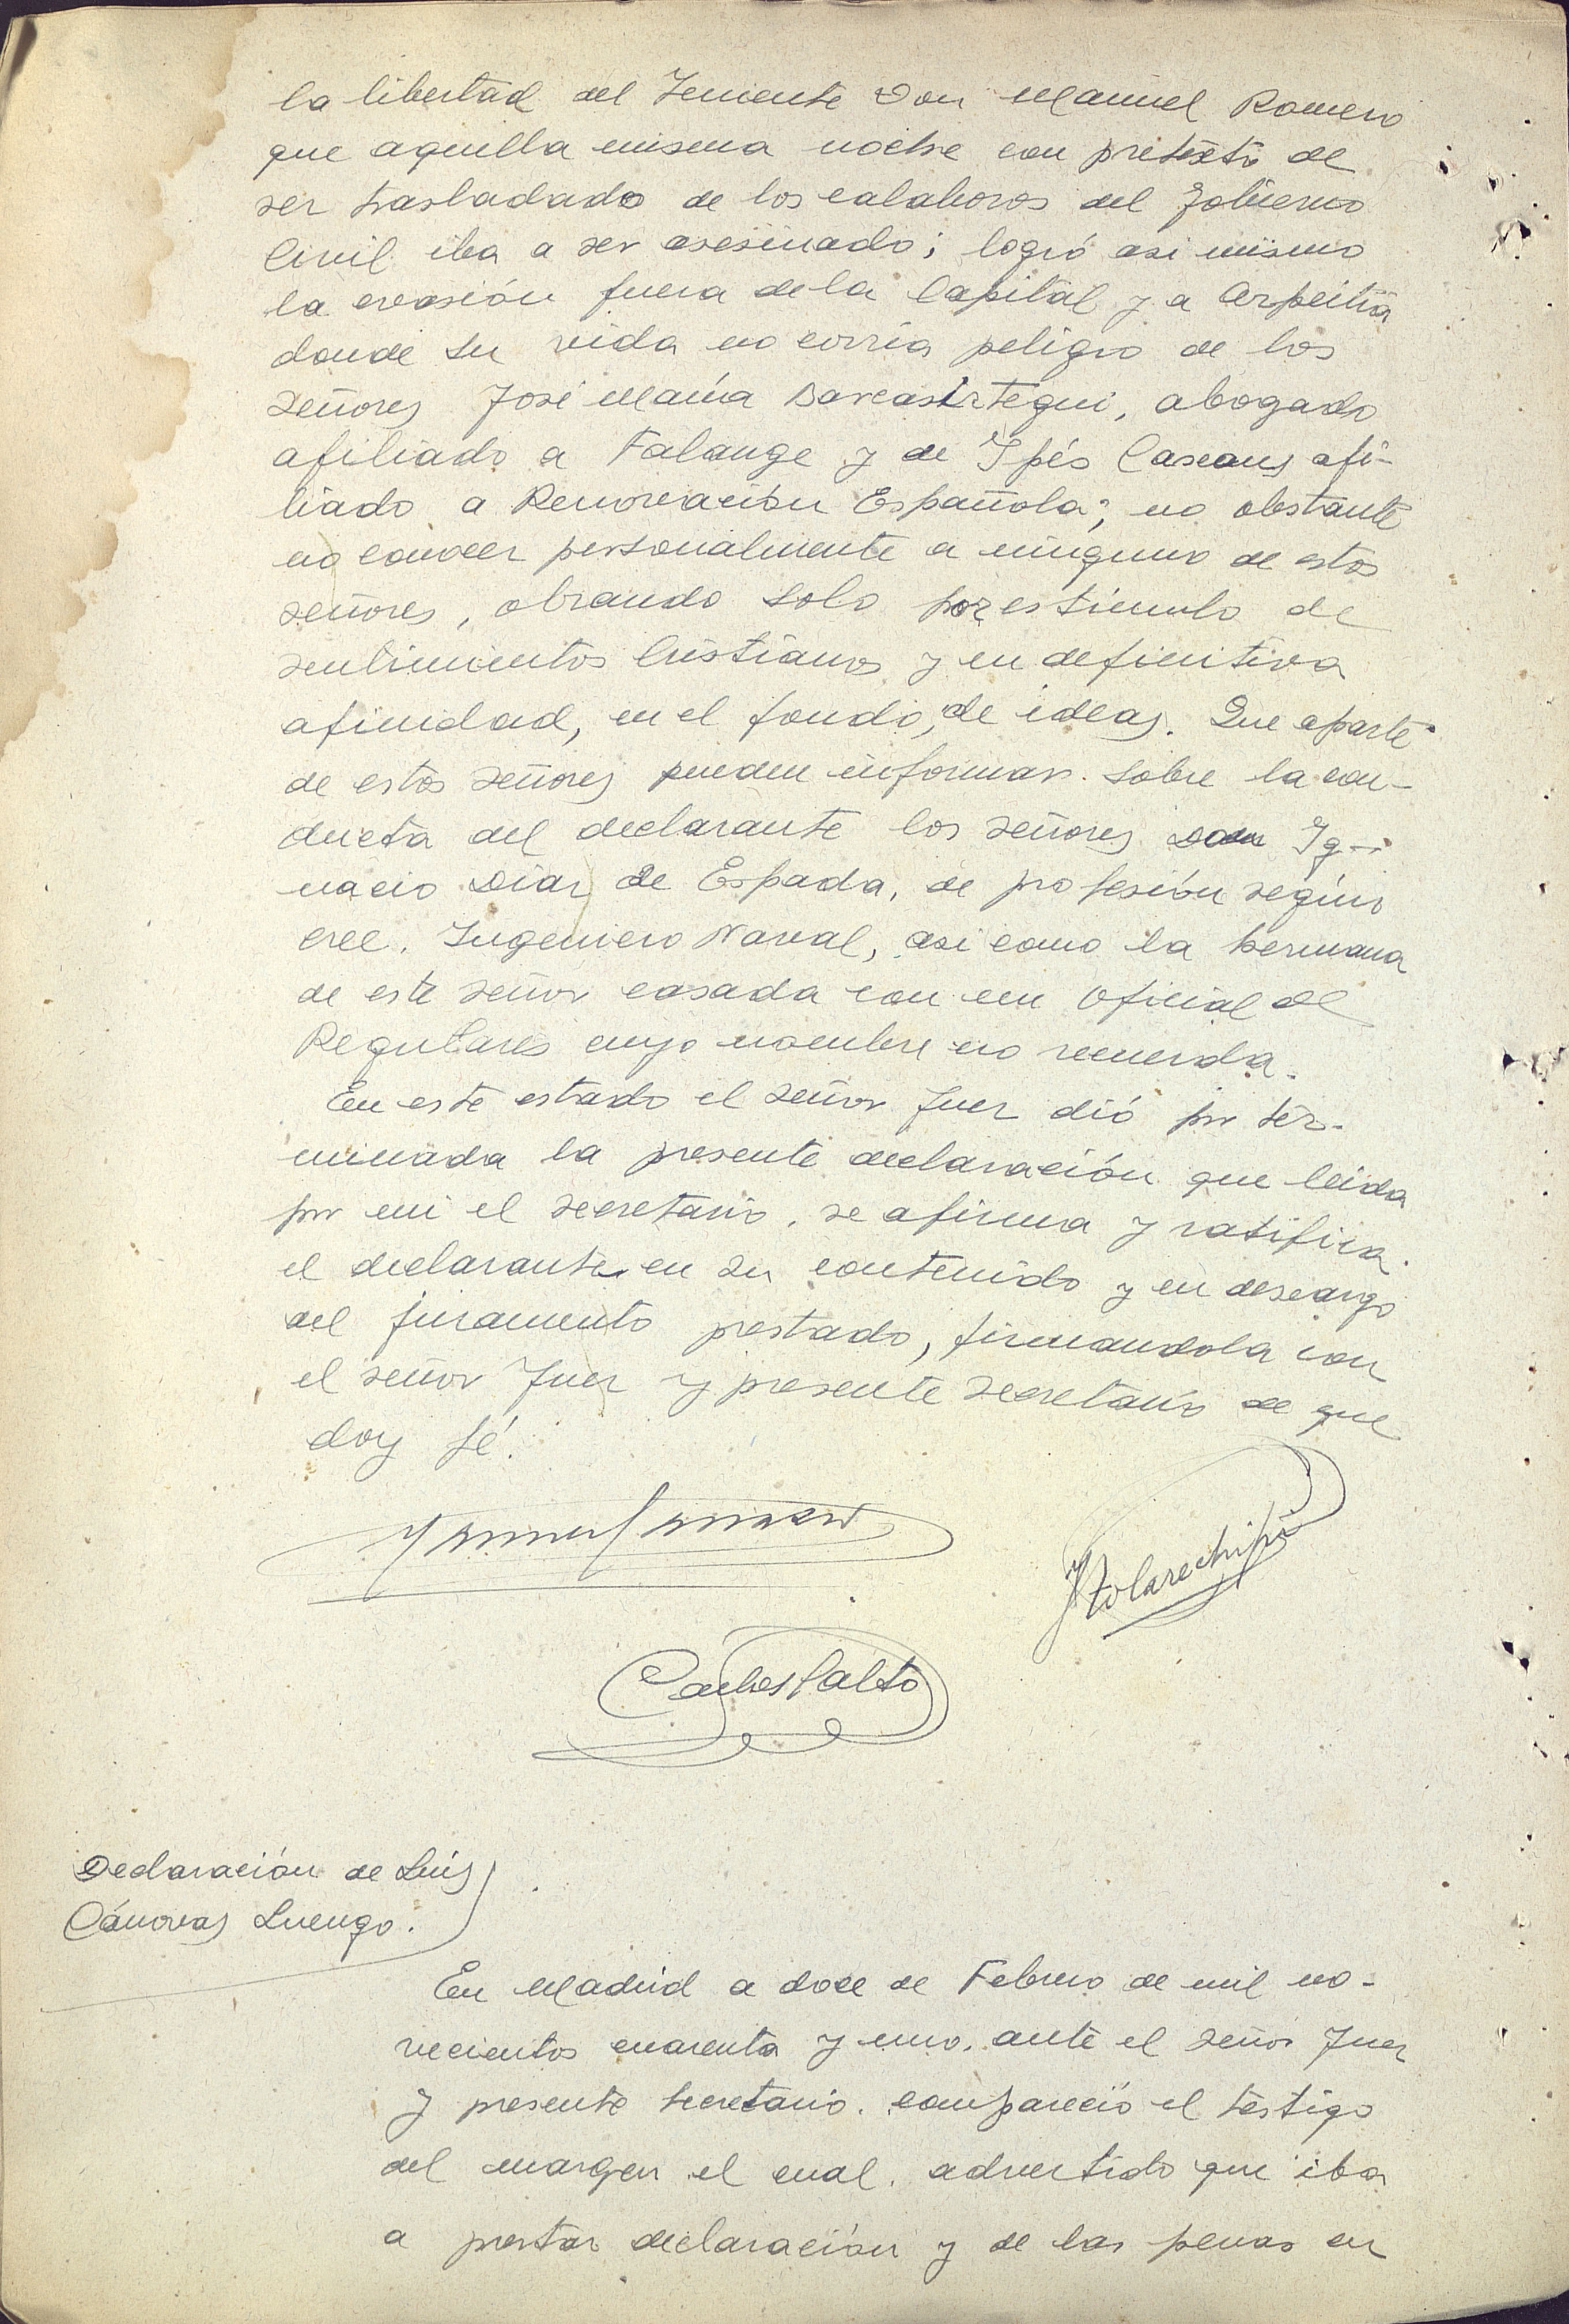 la libertad del Teniente Don Manuel Romero
que aquella misma noche con pretexto de
ser trasladado de los calabozos del Gobierno
Civil iba a ser asesinado; logró asi mismo
la evasión fuera de la Capital y a Azpeitia
donde su vida no corria peligro de los
señores José Maria Barcaiztegui, abogado
afiliado a Falange y de Ipés Cascaus afi-
liado a Renovación Española; no obstante
no conocer personalmente a ninguno de estos
señores, obrando solo por estimulo de
sentimientos Cristianos y en definitiva
afinidad, en el fondo, de ideas. Que aparte
de estos señores pueden informar sobre la con-
ducta del declarante los señores Don Ig-
nacio Diaz de Espada, de profesión según
cree, Ingeniero Naval, asi como la hermana
de este señor casada con un Oficial de
Regulares cuyo nombre no recuerda.
En este estado el señor Juez dió por ter-
minada la presente declaración que leida
por mi el secretario, se afirma y ratifica
el declarante en su contenido y en descargo
del juramento prestado, firmandola con
el señor Juez y presente secretario de que
doy fé.
Carlos Salto
Declaración de Luis
Cánovas Luengo.
En Madrid a doce de Febrero de mil no-
vecientos cuarenta y uno, ante el señor Juez
y presente secretario, compareció el testigo
del margen el cual, advertido que iba
a prestar declaración y de las penas en